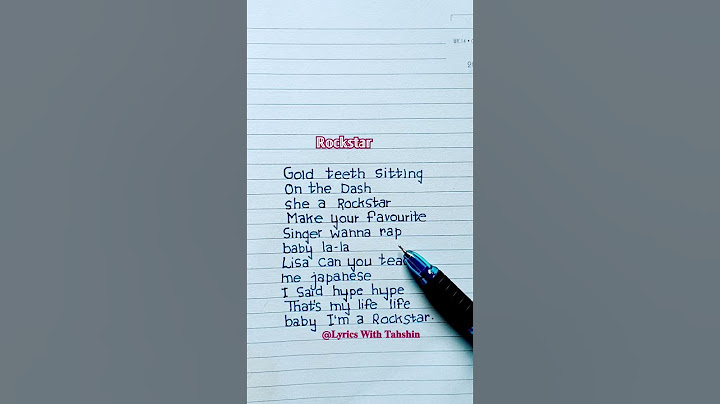 Rockstar
Gold teeth sitting
On the Dash
she a Rockstar
Make your favourite
Singer wanna rap
baby la-la
Lisa can you
me japanese
I said hype hype
That's my life life
baby I'm a Rockstar.
@Lyrics With Tahshin